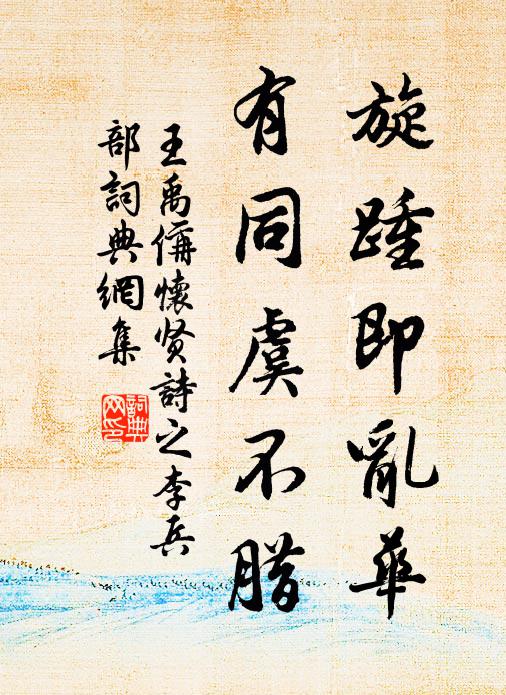 旋踵即亂華
有同虞不腊
王禹偁懷贤詩之李兵
部詞典網集
詞典网印